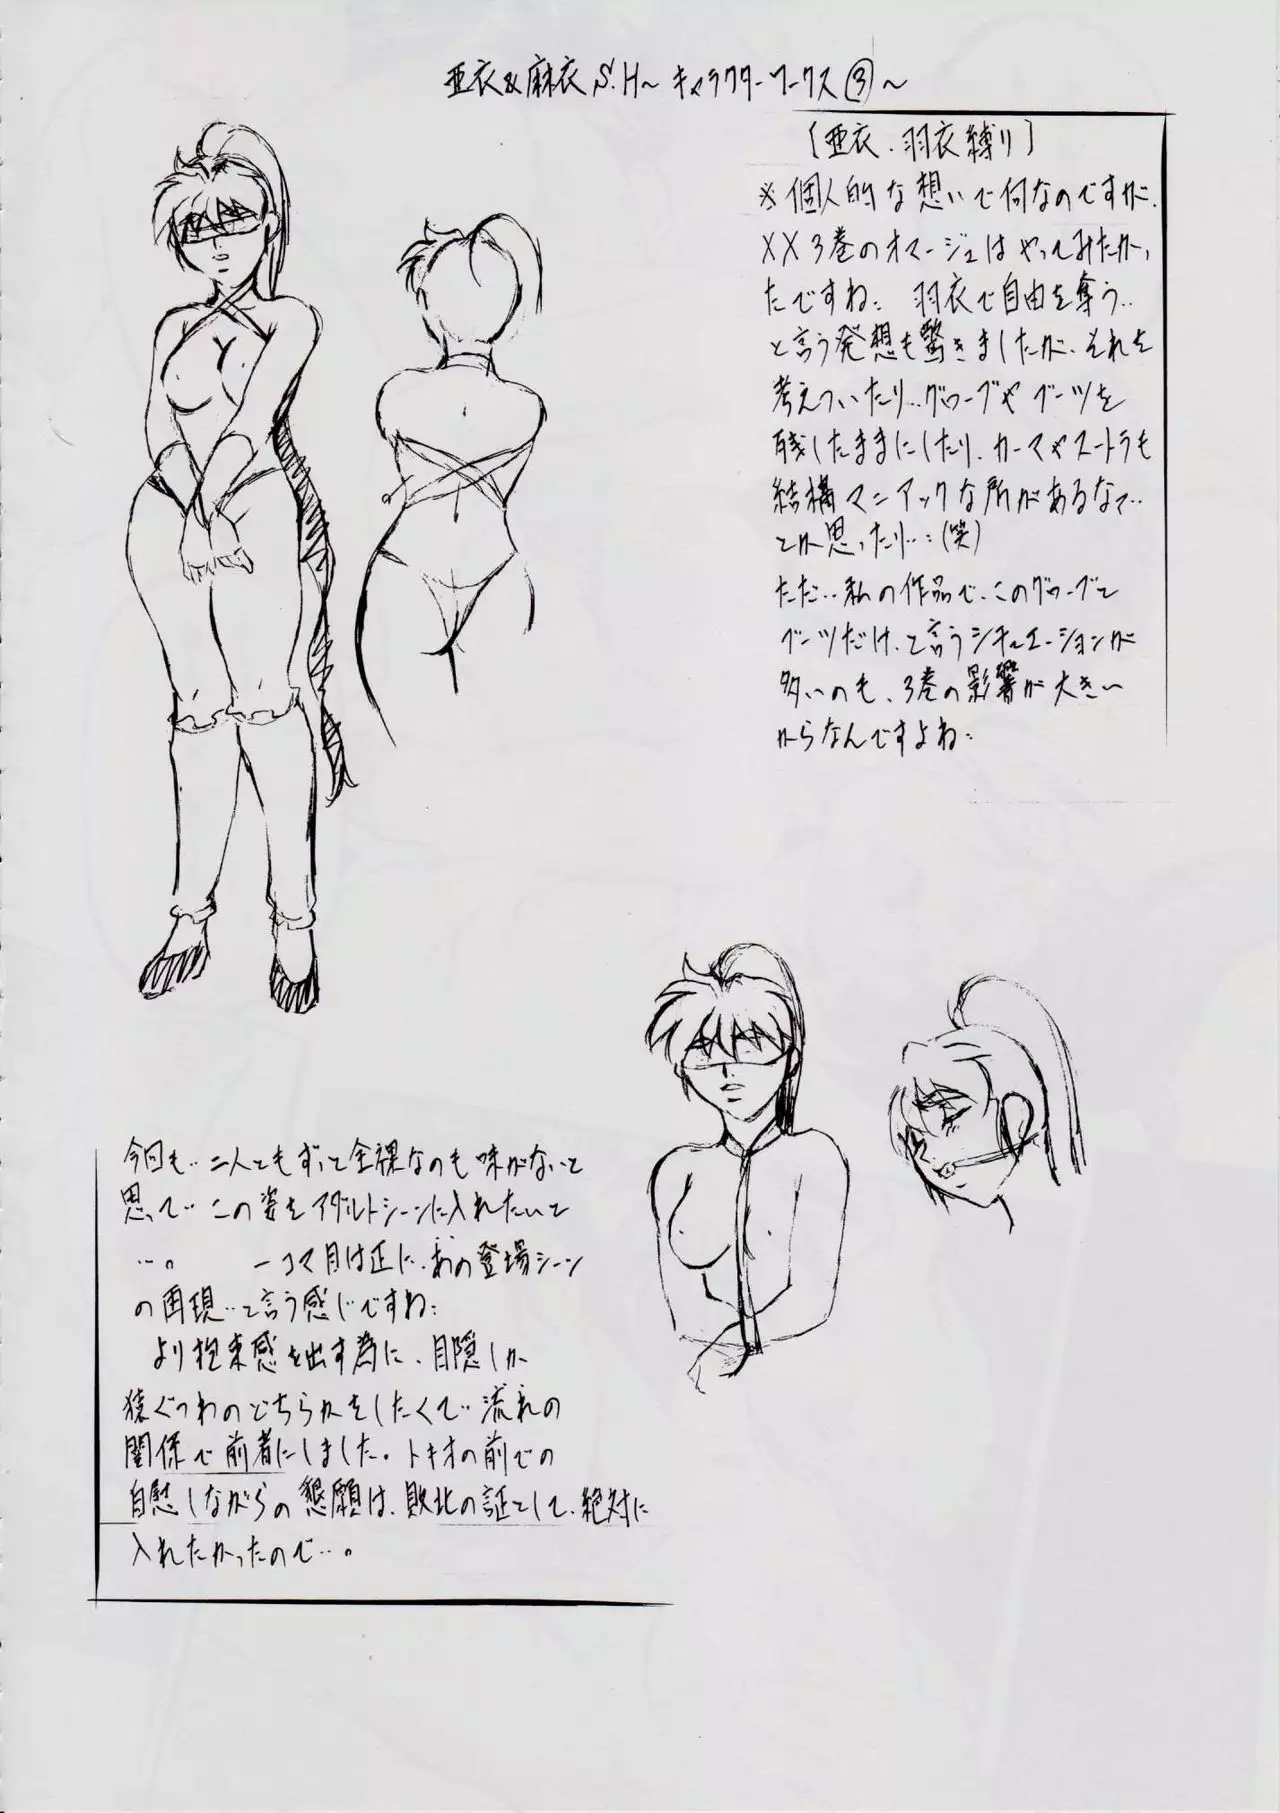 亜衣&麻衣 S.H～キャラクターワークス③～
[亜衣、羽衣縛り]
※個人的な想いで何なのですが、
XX3巻のオマージュはやってみたかっ
たですね‥ 羽衣で自由を奪う‥
と言う発想も驚きましたが、それを
考えついたり‥グローブやブーツを
残したままにしたり、カーマやスートラも
結構マニアックな所があるなって‥
とか思ったり‥(笑)
ただ‥私の作品で、このグローブと
ブーツだけ、と言うシチュエーションが
多いのも、3巻の影響が大きい
からなんですよね‥
今回も‥二人ともずって全裸なのも味がないと
思って‥この姿をアダルトシーンに入れたいと
‥。 一コマ目は正に、あの登場シーン
の再現‥と言う感じですね‥
より拘束感を出す為に、目隠しか
猿ぐつわのどちらかをしたくて‥流れの
関係で前者にしました。トキオの前での
自慰しながらの懇願は、敗北の証として、絶対に
入れたかったので‥。